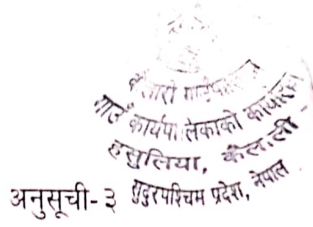 कैलारी गाउँपालिका
गाउँ कार्यपालिकाको कार्यालय
हसुलिया, कैलाली
सुदुरपश्चिम प्रदेश, नेपाल
अनुसूची-३